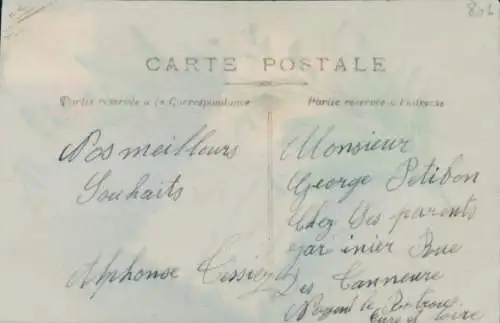 806
CARTE POSTALE
Partie réservée à la Correspondance
Partie réservée à l'adresse
Nos meilleurs
Souhaits
Alphonse Tessier
Monsieur
George Petibon
Chez Ses parents
jardinier Rue
Des Tanneurs
Nogent le Rotrou
Eure et Loire